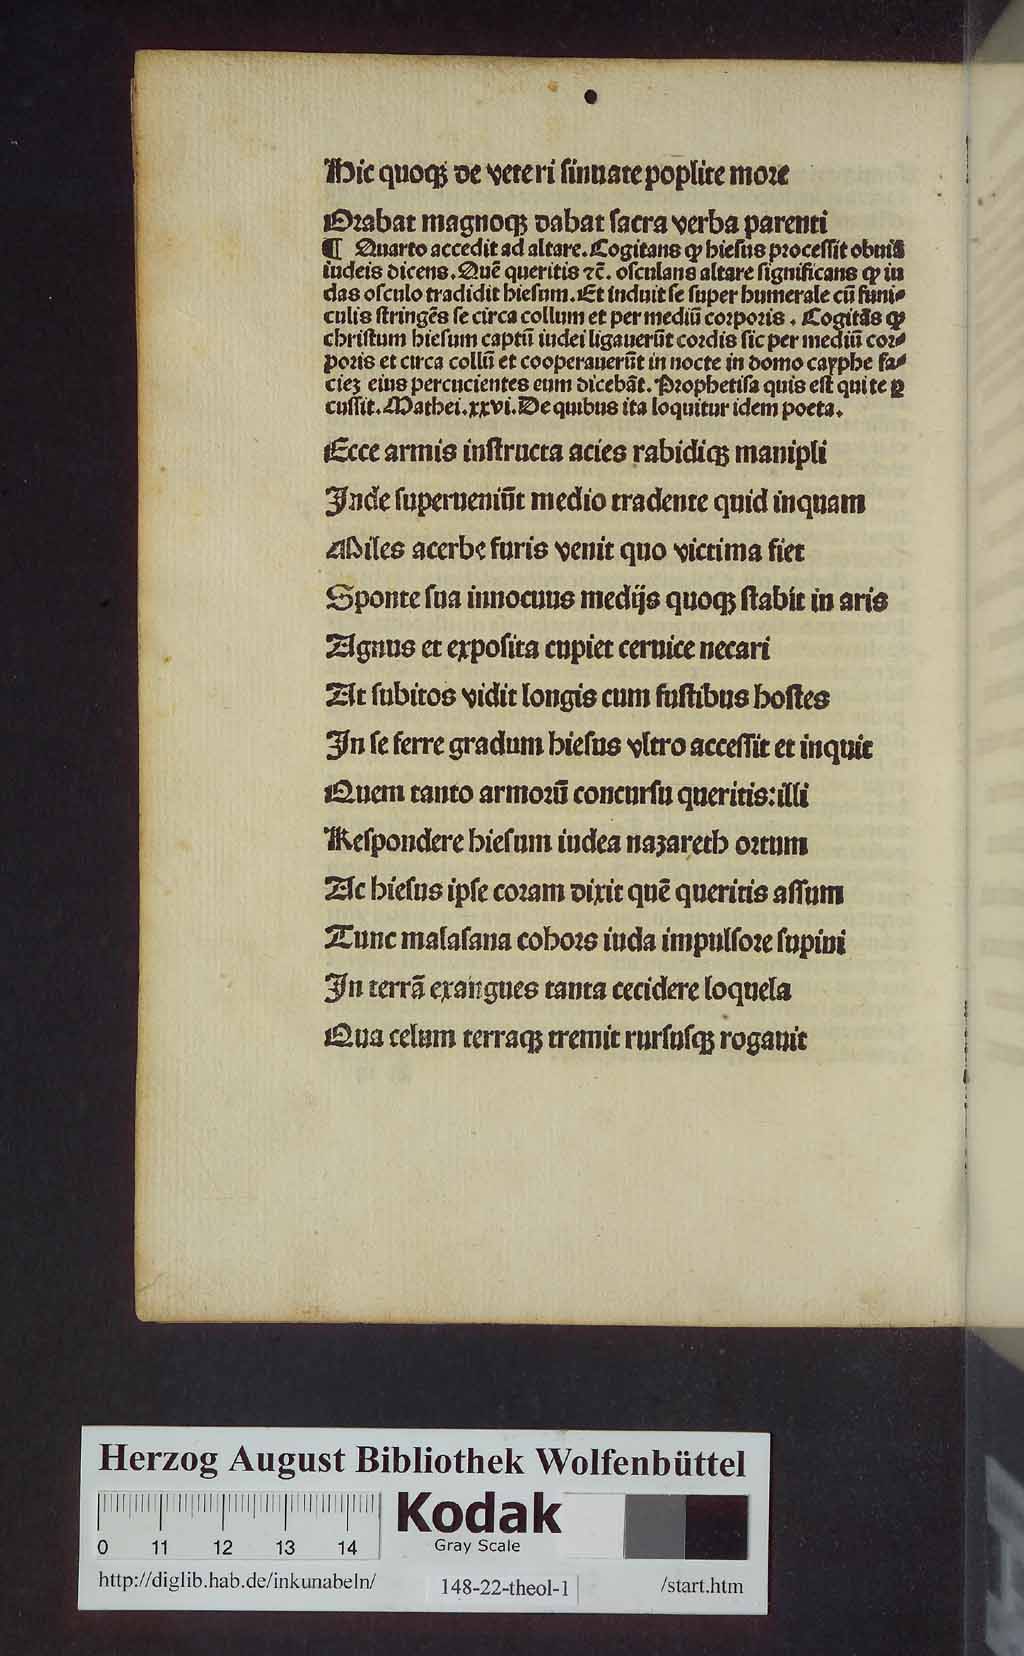 Hic quoqꝫ de veteri sinuate poplite more
Orabat magnoqꝫ dabat sacra verba parenti
¶ Quarto accedit ad altare. Cogitans ꝙ hiesus processit obuiā
iudeis dicens. Quē queritis ⁊c̄. osculans altare significans ꝙ iu
das osculo tradidit hiesum. Et induit se super humerale cū funi⸗
culis stringēs se circa collum et per mediū corporis. Cogitās ꝙ
christum hiesum captū iudei ligauerūt cordis sic per mediū cor⸗
poris et circa collū et cooperauerūt in nocte in domo cayphe fa⸗
cieꝫ eius percucientes eum dicebāt. Prophetisa quis est qui te ꝑ
cussit. Mathei. xxvi. De quibus ita loquitur idem poeta.
Ecce armis instructa acies rabidiqꝫ manipli
Inde superueniūt medio tradente quid inquam
Miles acerbe furis venit quo victima fiet
Sponte sua innocuus medijs quoqꝫ stabit in aris
Agnus et exposita cupiet ceruice necari
At subitos vidit longis cum fustibus hostes
In se ferre gradum hiesus vltro accessit et inquit
Quem tanto armorū concursu queritis: illi
Respondere hiesum iudea nazareth ortum
Ac hiesus ipse coram dixit quē queritis assum
Tunc malasana cohors iuda impulsore supini
In terrā exangues tanta cecidere loquela
Qua celum terraqꝫ tremit rursusqꝫ rogauit
Herzog August Bibliothek Wolfenbüttel
Kodak
Gray Scale
0 11 12 13 14
http://diglib.hab.de/inkunabeln/ 148-22-theol-1 /start.htm